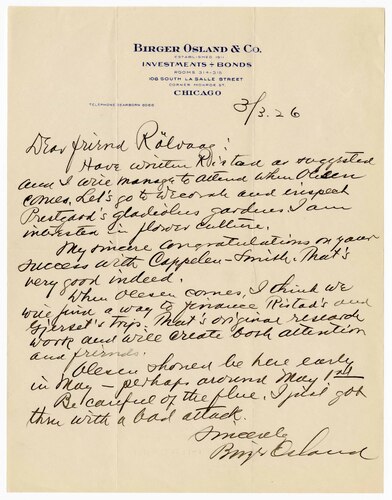 BIRGER OSLAND & CO.
ESTABLISHED 1911
INVESTMENTS + BONDS
ROOMS 314-315
108 SOUTH LA SALLE STREET
CORNER MONROE ST.
CHICAGO
TELEPHONE DEARBORN
3/3.26
Dear friend Rölvaag:
Have written Ristad as suggested
and I will manage to attend when Olesen
comes. Let's go to Decorah and inspect
Prestgard's gladiolus gardens. I am
interested in flower culture.
My sincere congratulations on your
success with Cappelen-Smith. That's
very good indeed.
When Olesen comes, I think we
will find a way to finance Ristad's and
Gjerset's trips. That's original research
work and will create both attention
and friends.
Olesen should be here early
in May – perhaps around May 1st
Be careful of the flue. I just got
thru with a bad attack.
Sincerely
Birger Osland